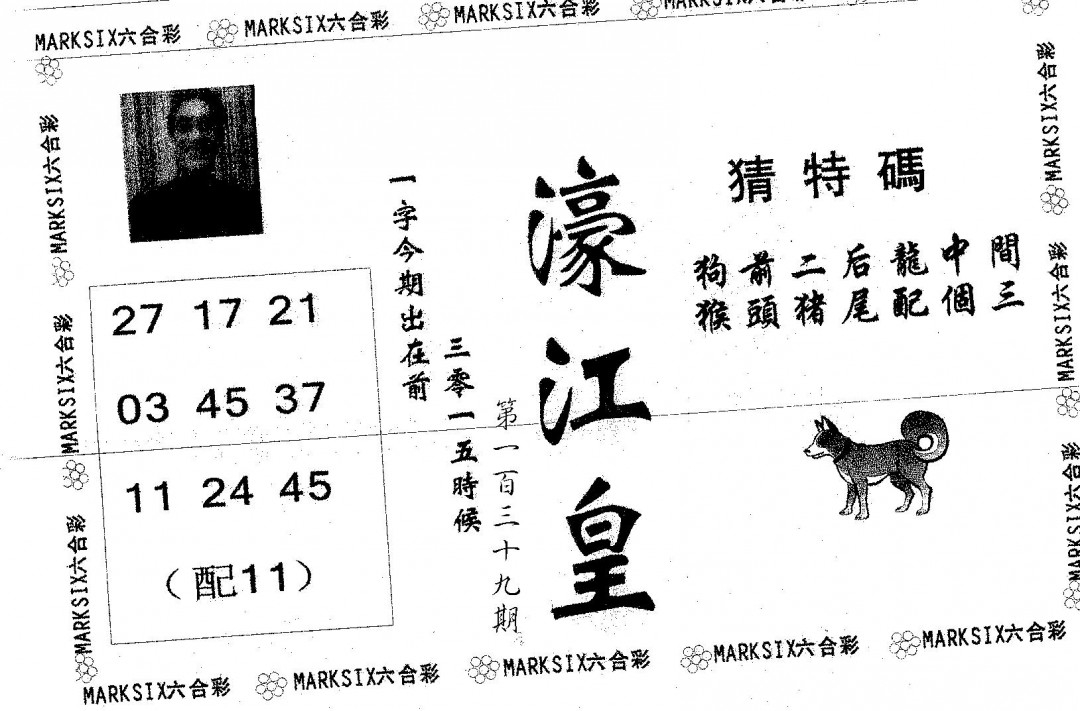 MARKSIX六合彩 MARKSIX六合彩 MARKSIX六合彩 MARKSIX六合彩
MARKSIX六合彩
MARKSIX六合彩
MARKSIX六合彩
27 17 21
03 45 37
11 24 45
（配11）
一字今期出在前
三零一五時候
第一百三十九期
濠江皇
猜特碼
狗前二后龍中間
猴頭豬尾配個三
MARKSIX六合彩
MARKSIX六合彩
MARKSIX六合彩
MARKSIX六合彩 MARKSIX六合彩 MARKSIX六合彩 MARKSIX六合彩 MARKSIX六合彩